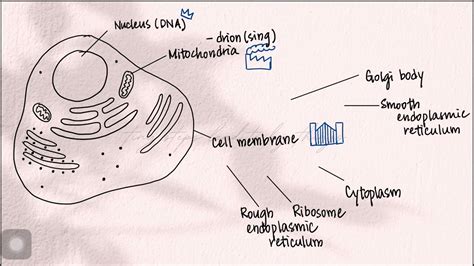 Nucleus (DNA)
- drion (sing)
Mitochondria
Golgi body
Smooth
endoplasmic
reticulum
Cell membrane
Cytoplasm
Ribosome
Rough
endoplasmic
reticulum